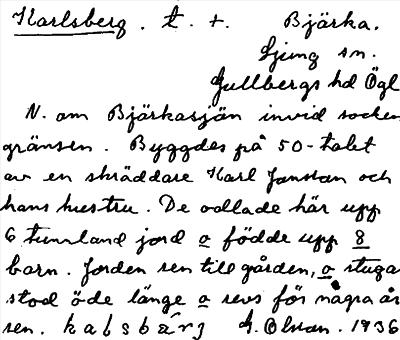 Karlsberg. t. +. Bjärka.
Ljung sn.
Gullbergs hd Ögl
N. om Bjärkasjön invid socken
gränsen. Byggdes på 50-talet
av en skräddare Karl Jonsson och
hans hustru. De odlade här upp
6 tunnland jord o födde upp 8
barn. Jorden sen till gården, o stuga
stod öde länge o revs för några år
sen. kalsbärj G. Olsson. 1936